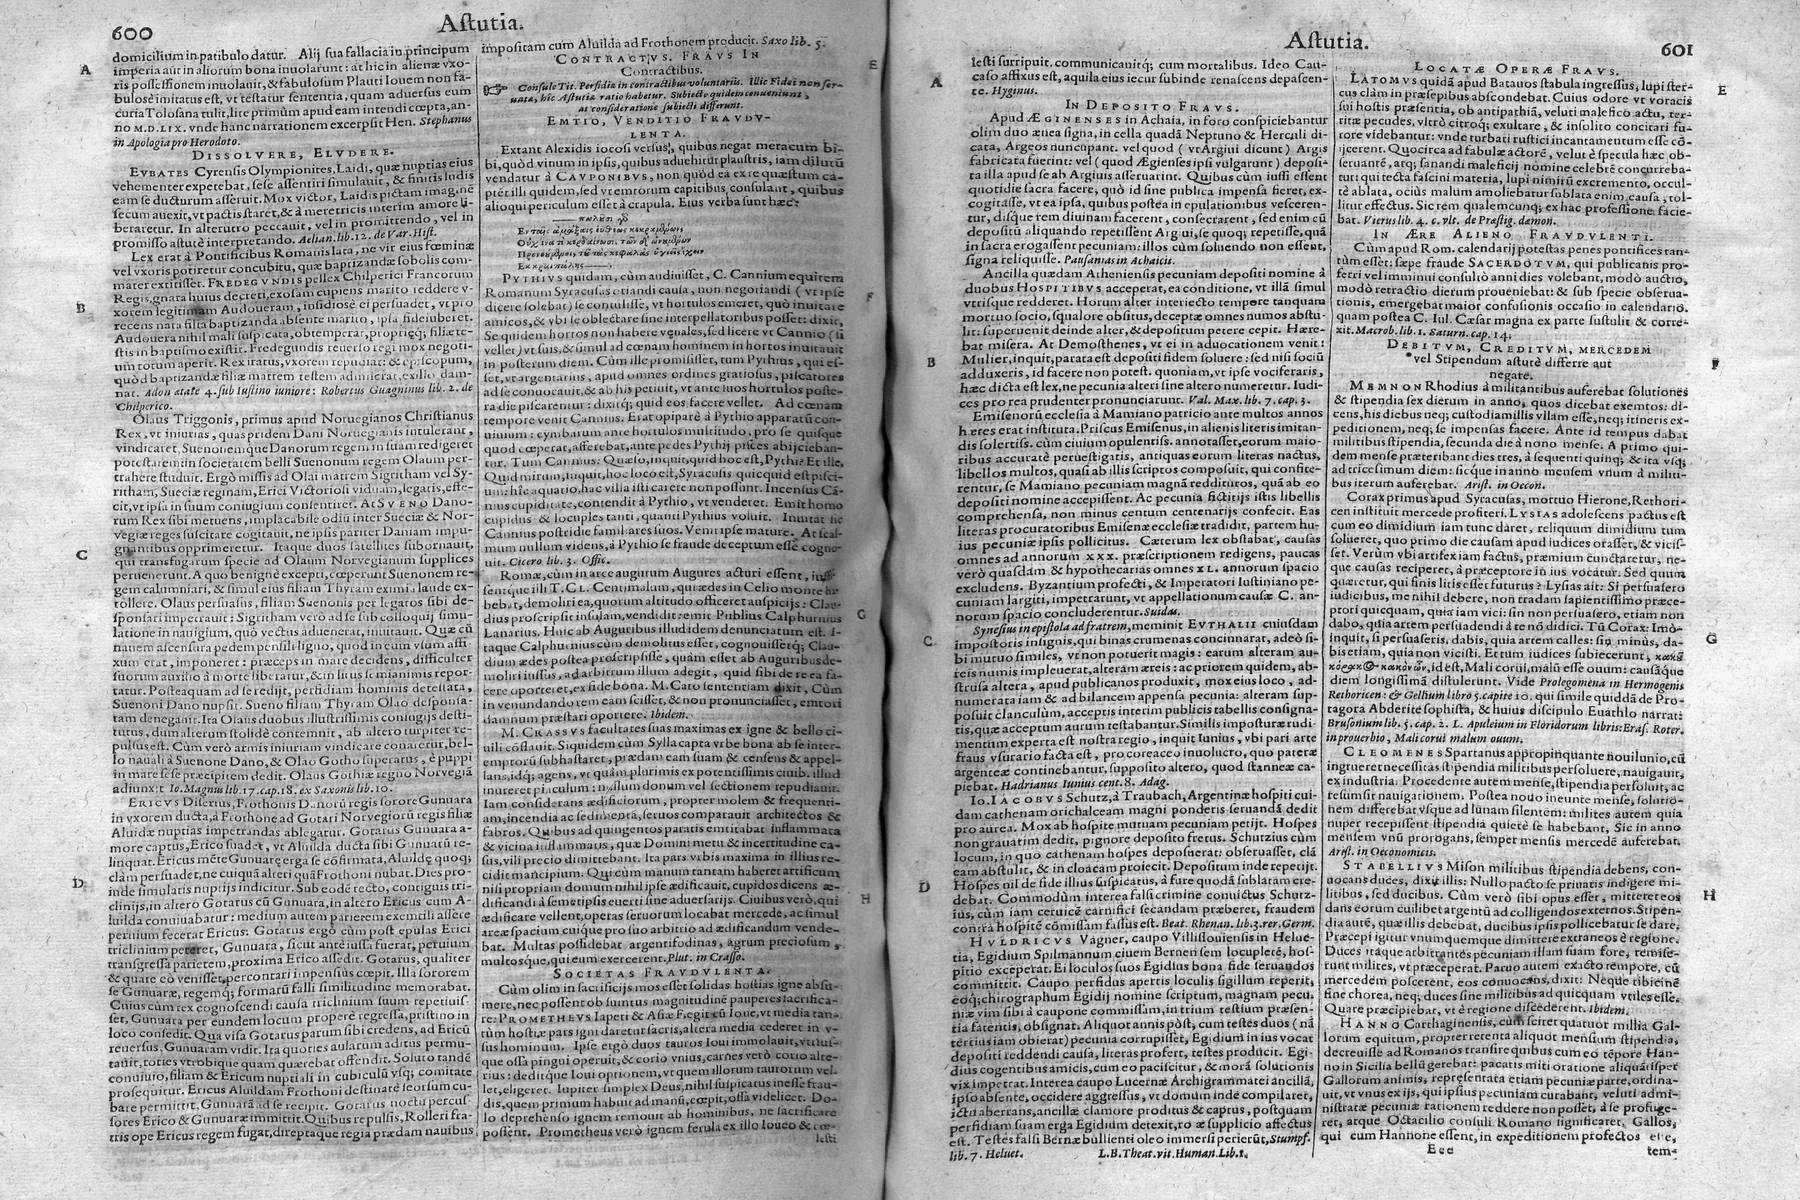 600
Aſtutia.
domicilium in patibulo datur. Alij sua fallacia in principum
imperia aut in aliorum bona inuolarunt: at hic in alienæ vxo-
ris poſſeſſionem inuolauit, & fabulosum Plauti Iouem non fa-
bulosè imitatus eſt, vt teſtatur sententia, quam aduersus eum
curia Tolosana tulit, lite primùm apud eam intendi cœpta, an-
no M.D.LIX. vnde hanc narrationem excerpsit Hen. Stephanus
in Apologia pro Herodoto.
DISSOLVERE, ELVDERE.
EVBATES Cyrensis Olympionites, Laidi, quæ nuptias eius
vehementer expetebat, ſeſe aſſentiri simulauit, & finitis ludis
eam se ducturum aſſeruit. Mox victor, Laidis pictam imaginē
secum auexit, vt pactis ſtaret, & à meretricis interim amore li-
beraretur. In alterutro peccauit, vel in promittendo, vel in
promiſſo aſtutè interpretando. Aelian. lib. 12. de Var. Hiſt.
Lex erat à Pontificibus Romanis lata, ne vir eius fœminæ
vel vxoris potiretur concubitu, quæ baptizandæ sobolis com-
mater extitiſſet. FREDEGVNDIS pellex Chilperici Francorum
Regis, gnara huius decreti, exosam cupiens marito reddere v-
xorem legitimam Audoueram, insidiosè ei persuadet, vt pro
recens nata filia baptizanda absente marito, ipsa fideiuberet.
Audouera nihil mali suspicata, obtemperat, proprięq́; filiæ te-
ſtis in baptismo exiſtit. Fredegundis reuerso regi mox negoti-
um totum aperit. Rex iratus, vxorem repudiat: & episcopum,
quòd baptizandæ filiæ matrem teſtem admiserat, exilio dam-
nat. Adon ætate 4. sub Iuſtino iuniore: Robertus Guaguinus lib. 2. de
Chilperico.
Olaus Triggonis, primus apud Noruegianos Chriſtianus
Rex, vt iniurias, quas pridem Dani Noruegianis intulerant,
vindicaret, Suenonemque Danorum regem in suam redigeret
poteſtatem: in societatem belli Suenonum regem Olaum per-
trahere ſtuduit. Ergò miſſis ad Olai matrem Sigritham vel Sy-
ritham, Sueciæ reginam, Erici Victoriosi viduam, legatis, effe-
cit, vt ipsa in suum coniugium consentiret. At SVENO Dano-
rum Rex sibi metuens, implacabile odiū inter Sueciæ & Nor-
vegiæ reges suscitare cogitauit, ne ipsis pariter Daniam impu-
gnantibus opprimeretur. Itaque duos satellites subornauit,
qui transfugarum specie ad Olaum Noruegianum supplices
peruenerunt. A quo benignè excepti, cœperunt Suenonem re-
gem calumniari, & simul eius filiam Thyram eximia laude ex-
tollere. Olaus persuasus, filiam Suenonis per legatos sibi de-
sponsari imperauit: Sigritham verò ad se sub colloquij simu-
latione in nauigium, quò vectus aduenerat, inuitauit. Quæ cū
nauem ascensura pedem pensili ligno, quod in eum vsum aſſi-
xum erat, imponeret: præceps in mare decidens, difficulter
suorum auxilio à morte liberatur, & in litus semianimis repor-
tatur. Poſteaquam ad se redijt, perfidiam hominis deteſtata,
Suenoni Dano nupsit. Sueno filiam Thyram Olao desponsa-
tam denegauit. Ita Olaus duobus illuſtriſſimis coniugijs deſti-
tutus, dum alterum ſtolidè contemnit, ab altero turpiter re-
pulsus eſt. Cùm verò armis iniuriam vindicare conaretur, bel-
lo nauali à Suenone Dano, & Olao Gotho superatus, è puppi
in mare sese præcipitem dedit. Olaus Gothiæ regno Norvegiā
adiunxit. Io. Magnus lib. 17. cap. 18. ex Saxonis lib. 10.
ERICVS Disertus, Frothonis Danorū regis sorore Gunuara
in vxorem ducta, à Frothone ad Gotari Norvegiorū regis filiæ
Aluidæ nuptias impetrandas ablegatur. Gotarus Gunuaræ a-
more captus, Erico suadet, vt Aluilda ducta sibi Gunuarū re-
linquat. Ericus mētē Gunuaręę erga se cōfirmata, Aluildę quoq́;
clàm persuadet, ne cuiquā alteri quā Frothoni nubat. Dies pro-
inde simulatis nuptijs indicitur. Sub eodē tecto, contiguis tri-
clinijs, in altero Gotarus cū Gunuara, in altero Ericus cum A-
luilda conuiuabatur: medium autem parietem exemtili aſſere
peruium fecerat Ericus. Gotarus ergò cùm poſt epulas Erici
triclinium peteret, Gunuara, sicut antè iuſſa fuerat, peruium
transgreſſa parietem, proxima Erico aſſedit. Gotarus, qualiter
& quare eò veniſſet, percontari impensius cœpit. Illa sororem
se Gunuaræ, regemq́; formarū falli similitudine memorabat.
Cuius cùm rex cognoscendi causa triclinium suum repetiuis-
set, Gunuara per eundem locum properè regreſſa, priſtino in
loco consedit. Qua visa Gotarus parum sibi credens, ad Ericū
reuersus, Gunuaram vidit. Ita quoties aularum aditus permu-
tauit, toties vtrobique quam quærebat offendit. Soluto tandē
conuiuio, filiam & Ericum nuptiali in cubiculū vsq́; comitate
prosequitur. Ericus Aluildam Frothoni deſtinatā seorsum cu-
bare permittit, Gunuarā ad se recipit. Gotarus noctu percus-
sores Erico & Gunuaræ immittit. Quibus repulsis, Rolleri fra-
tris ope Ericus regem fugat, direptaque regia prædam nauibus
A
B
C
D
impositam cum Aluilda ad Frothonem producit. Saxo lib. 5.
CONTRACTVS. FRAVS IN
Contractibus.
☞ Consule Tit. Perfidia in contractibus voluntarijs. Illic Fidei non ser-
uatæ, hîc Aſtutiæ ratio habetur. Subiecto quidem conueniunt,
at consideratione subiecti differunt.
EMTIO, VENDITIO FRAVDV-
LENTA.
Extant Alexidis iocosi versus, quibus negat meracum bi-
bi, quòd vinum in ipsis, quibus aduehitur plauſtris, iam dilutū
vendatur à CAVPONIBVS, non quòd ea ex re quæſtum ca-
ptēt illi quidem, sed vt emtorum capitibus consulant, quibus
alioqui periculum eſſet à crapula. Eius verba sunt hæc:
PYTHIVS quidam, cùm audiuiſſet, C. Cannium equitem
Romanum Syracusas otiandi causa, non negoriandi (vt ipse
dicere solebat) se contuliſſe, vt hortulos emeret, quò inuitare
amicos, & vbi se oblectare sine interpellatoribus poſſet: dixit,
Se quidem hortos non habere venales, sed licere vt Cannio (si
vellet) vt suis, & simul ad cœnam hominem in hortos inuitauit
in poſterum diem. Cùm ille promisiſſet, tum Pythius, qui es-
set, vt argentarius, apud omnes ordines gratiosus, piscatores
ad se conuocauit, & ab his petiuit, vt ante suos hortulos poſte-
ra die piscarentur: dixitq́; quid eos facere vellet. Ad cœnam
tempore venit Cannius. Erat opiparè à Pythio apparatū con-
uiuium: cymbarum ante hortulos multitudo, pro se quisque
quod cœperat, afferebat, ante pedes Pythij pisces abijcieban-
tur. Tum Cannius: Quæso, inquit, quid hoc eſt, Pythi? Et ille,
Quid mirum, inquit, hoc loco eſt, Syracusis quicquid eſt pisci-
um: hîc aquatio, hac villa iſti carere non poſſunt. Incensus Cā-
nius cupiditate, contendit à Pythio, vt venderet. Emit homo
cupidus & locuples tanti, quanti Pythius voluit. Inuitat hic
Cannius poſtridie familiares suos. Venit ipse mature. At scal-
mum nullum videns, à Pythio se fraude deceptum eſſe cogno-
uit. Cicero lib. 3. Offic.
Romæ, cùm in arce augurum Augures acturi eſſent, ius-
sentque illi T. CL. Centimalum, qui ædes in Celio monte ha-
bebat, demoliri ea, quorum altitudo officeret auspicijs: Clau-
dius proscripsit insulam, vendidit: emit Publius Calphurnius
Lanarius. Huic ab Auguribus illud idem denunciatum eſt. I-
taque Calphurnius cùm demolitus eſſet, cognouiſſetq́; Clau-
dium ædes poſtea proscripsiſſe, quàm eſſet ab Auguribus de-
moliri iuſſus, ad arbitrum illum adegit, quid sibi de re ea fa-
cere oporteret, ex fide bona. M. Cato sententiam dixit, Cùm
in venundando rem eam sciſſet, & non pronunciaſſet, emtori
damnum præſtari oportere. Ibidem.
M. CRASSVS facultates suas maximas ex igne & bello ci-
uili cōflauit. Siquidem cùm Sylla capta vrbe bona ab se inter-
emptorū subhaſtaret, prædam eam suam & censens & appel-
lans, idq́; agens, vt quàm plurimis ex potentiſſimis ciuib. illud
inureret piaculum: nullum donum vel sectionem repudiauit.
Iam considerans ædificiorum, propter molem & frequenti-
am, incendia ac sedimenta, seruos comparauit architectos &
fabros. Quibus ad quingentos paratis emtitabat inflammata
& vicina inflammatis, quæ Domini metu & incertitudine ca-
sus, vili precio dimittebant. Ita pars vrbis maxima in illius re-
cidit mancipium. Qui cùm manum tantam haberet artificum
nisi propriam domum nihil ipse ædificauit, cupidos dicens æ-
dificandi à semetipsis euerti sine aduersarijs. Ciuibus verò, qui
ædificare vellent, operas seruorum locabat mercede, ac simul
areæ spacium cuique pro suo arbitrio ad ædificandum vende-
bat. Multas possidebat argentifodinas, agrum preciosum,
multosque, qui eum exercerent. Plut. in Craſſo.
SOCIETAS FRAVDVLENTA.
Cùm olim in sacrificijs mos eſſet solidas hoſtias igne absu-
mere, nec poſſent ob sumtus magnitudinē pauperes sacrifica-
re: PROMETHEVS Iapeti & Asiæ F. egit cū Ioue, vt media tan-
tùm hoſtiæ pars igni daretur sacris, altera media cederet in v-
sus hominum. Ipse ergò duos tauros Ioui immolauit, vtrius-
que oſſa pingui operuit, & corio vnius, carnes verò corio alte-
rius: deditque Ioui optionem, vt quem illorum taurorum vel-
let, eligeret. Iupiter simplex Deus, nihil suspicatus ineſſe frau-
dis, quem primum habuit ad manū, cœpit, oſſa videlicet. Do-
lo deprehenso ignem remouit ab hominibus, ne sacrificare
poſſent. Prometheus verò ignem ferula ex illo Ioueo & cœ-
leſti
E
F
G
H
Aſtutia.
601
leſti surripuit, communicauitq́; cum mortalibus. Ideo Cau-
caso affixus eſt, aquila eius iecur subinde renascens depascen-
te. Hyginus.
IN DEPOSITO FRAVS.
Apud ÆGINENSES in Achaia, in foro conspiciebantur
olim duo ænea signa, in cella quadā Neptuno & Herculi di-
cata, Argeos nuncupant. vel quod (vt Argiui dicunt) Argis
fabricata fuerint: vel (quod Ægienses ipsi vulgarunt) deposi-
ta illa apud se ab Argiuis aſſeruarint. Quibus cùm iuſſi eſſent
quotidie sacra facere, quò id sine publica impensa fieret, ex-
cogitaſſe, vt ea ipsa, quibus poſtea in epulationibus vescеren-
tur, disque rem diuinam facerent, consecrarent, sed enim cū
depositū aliquando repetiſſent Argiui, se quoq́; repetiſſe, quā
in sacra erogaſſent pecuniam: illos cùm soluendo non eſſent,
signa reliquiſſe. Pausanias in Achaicis.
Ancilla quædam Atheniensis pecuniam depositi nomine à
duobus HOSPITIBVS acceperat, ea conditione, vt illā simul
vtrisque redderet. Horum alter interiecto tempore tanquam
mortuo socio, squalore obsitus, deceptæ omnes numos abstu-
lit: superuenit deinde alter, & depositum petere cepit. Hære-
bat misera. At Demosthenes, vt ei in aduocationem venit:
Mulier, inquit, parata eſt depositi fidem soluere: sed nisi sociū
adduxeris, id facere non poteſt. quoniam, vt ipse vociferaris,
hæc dicta eſt lex, ne pecunia alteri sine altero numeretur. Iudi-
ces pro rea prudenter pronunciarunt. Val. Max. lib. 7. cap. 3.
Emisenorū ecclesia à Mamiano patricio ante multos annos
heres erat inſtituta. Priscus Emisenus, in alienis literis imitan-
dis solertiſs. cùm ciuium opulentiſs. annotaſſet, eorum maio-
ribus accuratè perueſtigatis, antiquas eorum literas nactus,
libellos multos, quasi ab illis scriptos composuit, qui confite-
rentur, se Mamiano pecuniam magnā reddituros, quā ab eo
depositi nomine accepiſſent. Ac pecunia fictitijs iſtis libellis
comprehensa, non minus centum centenarijs confecit. Eas
literas procuratoribus Emisenæ ecclesiæ tradidit, partem hu-
ius pecuniæ ipsis pollicitus. Cæterùm lex obſtabat, causas
omnes ad annorum XXX. præscriptionem redigens, paucas
verò quasdam & hypothecarias omnes XL. annorum spacio
excludens. Byzantium profecti, & Imperatori Iuſtiniano pe-
cuniam largiti, impetrarunt, vt appellationum causæ C. an-
norum spacio concluderentur. Suidas.
Synesius in epiſtola ad fratrem, meminit EVTHALII cuiusdam
impoſtoris insignis, qui binas crumenas concinnarat, adeò si-
bi mutuo similes, vt non potuerit magis: earum alteram au-
reis numis impleuerat, alteram æreis: ac priorem quidem, ab-
ſtrusa altera, apud publicanos produxit, mox eius loco, ad-
numerata iam & ad bilancem appensa pecunia: alteram sup-
posuit clanculùm, acceptis interim publicis tabellis consigna-
tis, quæ acceptum aurum teſtabantur. Similis impoſturæ rudi-
mentum experta eſt noſtra regio, inquit Iunius, vbi pari arte
fraus vsurario facta eſt, pro coreaceo inuolucro, quo pateræ
argenteæ continebantur, supposito altero, quod ſtanneæ ca-
piebat. Hadrianus Iunius cent. 8. Adag.
IO. IACOBVS Schutz, à Traubach, Argentinæ hospiti cui-
dam cathenam orichalceam magni ponderis seruandā dedit
pro aurea. Mox ab hospite mutuam pecuniam petijt. Hospes
non grauatim dedit, pignore deposito fretus. Schutzius cùm
locum, in quo cathenam hospes deposuerat, obseruaſſet, clā
eam abſtulit, & in cloacam proiecit. Depositum inde repetijt.
Hospes nil de fide illius suspicatus, à fure quodā sublatam cre-
debat. Commodùm interea falsi crimine conuictus Schutz-
ius, cùm iam ceruicē carnifici secandam præberet, fraudem
contra hospitē cōmiſſam faſſus eſt. Beat. Rhenan. lib. 3. rer. Germ.
HVLDRICVS Vagner, caupo Villisouiensis in Helue-
tia, Egidium Spilmannum ciuem Bernensem locupletē, hos-
pitio exceperat. Ei loculos suos Egidius bona fide seruandos
committit. Caupo perfidus apertis loculis sigillum reperit,
eoq́; chirographum Egidij nomine scriptum, magnam pecu-
niæ vim sibi à caupone commiſſam, in trium teſtium præsen-
tia fatentis, obsignat. Aliquot annis pòſt, cum teſtes duos (nā
tertius iam obierat) pecunia corrupiſſet, Egidium in ius vocat
depositi reddendi causa, literas profert, teſtes producit. Egi-
dius cogentibus amicis, cum eo paciscitur, & morā solutionis
vix impetrat. Interea caupo Lucernæ Archigrammatei ancillā,
ipso absente, occidere aggreſſus, vt domum inde compilaret,
ictu aberrans, ancillæ clamore proditus & captus, poſtquam
perfidiam suam erga Egidium detexit, rotæ supplicio affectus
eſt. Teſtes falsi Bernæ bullienti oleo immersi perierūt, Stumpf.
lib. 7. Heluet.
L.B. Theat. vit. Human. Lib. 1.
A
B
C
D
LOCATÆ OPERÆ FRAVS.
LATOMVS quidā apud Batauos ſtabula ingreſſus, lupi ſter-
cus clàm in præsepibus abscondebat. Cuius odore vt voracis
sui hostis præsentia, ob antipathiā, veluti malefico actu, ter-
ritæ pecudes, vltrò citroq́; exultare, & insolito concitari fu-
rore videbantur: vnde turbati ruſtici incantamentum eſſe cō-
ijcerent. Quocirca ad fabulæ actorē, velut è specula hæc ob-
seruantē, atq́; sanandi maleficij nomine celebrē concurreba-
tur: qui tecta fascini materia, lupi nimirū excremento, occul-
tè ablata, ociùs malum amoliebatur sublata enim causa, tol-
litur effectus. Sic rem qualemcunq́; ex hac professione facie-
bat. Vierus lib. 4. c. vlt. de Præſtig. dæmon.
IN ÆRE ALIENO FRAVDVLENTI.
Cùm apud Rom. calendarij poteſtas penes pontifices tan-
tùm eſſet: sæpe fraude SACERDOTVM, qui publicanis pro-
ferri vel imminui consultò anni dies volebant, modò auctio,
modò retractio dierum proueniebat: & sub specie obserua-
tionis, emergebat maior confusionis occasio in calendario.
quam poſtea C. Iul. Cæsar magna ex parte suſtulit & corre-
xit. Macrob. lib. 1. Saturn. cap. 14.
DEBITVM, CREDITVM, MERCEDEM
vel Stipendum aſtutè differre aut
negare.
MEMNON Rhodius à militantibus auferebat solutiones
& ſtipendia sex dierum in anno, quos dicebat exemtos: di-
cens, his diebus neq́; cuſtodiam illis vllam eſſe, neq́; itineris ex-
peditionem, neq́; se impensas facere. Ante id tempus dabat
militibus ſtipendia, secunda die à nono mense. A primo qui-
dem mense præteribant dies tres, à sequenti quinq́; & ita vsq́;
ad tricesimum diem: sicque in anno mensem vnum à militi-
bus iterum auferebat. Ariſt. in Oecon.
Corax primus apud Syracusas, mortuo Hierone, Rethori-
cen inſtituit mercede profiteri. LYSIAS adolescens pactus eſt
cum eo dimidium iam tunc daret, reliquum dimidium tum
solueret, quo primo die causam apud iudices oraſſet, & vicis-
set. Verùm vbi artifex iam factus, præmium cunctaretur, ne-
que causas reciperet, à præceptore in ius vocatur. Sed quum
quæretur, qui finis litis eſſet futurus? Lysias ait: Si persuasero
iudicibus, me nihil debere, non tradam sapientiſſimo præce-
ptori quicquam, quia iam vici: sin non persuasero, etiam non
dabo, quia artem persuadendi à te nō didici. Tū Corax: Imò
inquit, si persuaseris, dabis, quia artem calles: sin minus, da-
bis etiam, quia non vicisti. Et tum iudices subiecerunt,
id eſt, Mali corui, malū eſſe ouum: causāque
diem longiſſimā diſtulerunt. Vide Prolegomena in Hermogenis
Rethoricen: & Gellium libro 5. capite 10. qui simile quiddā de Pro-
tagora Abderitē sophiſta, & huius discipulo Euathlo narrat:
Brusonium lib. 5. cap. 2. L. Apuleium in Floridorum libris: Eras. Roter.
in prouerbio, Mali corui malum ouum.
CLEOMENES Spartanus appropinquante nouilunio, cū
ingrueret neceſſitas ſtipendia militibus persoluere, nauigauit,
ex induſtria. Procedente autem mense, ſtipendia persoluit, ac
resumsit nauigationem. Poſtea nouo ineunte mense, solutio-
nem differebat vsque ad lunam silentem: milites autem quia
nuper recepiſſent ſtipendia quietè se habebant. Sic in anno
mensem vnū prorogans, semper mensis mercedē auferebat.
Ariſt. in Oeconomicis.
STABELLIVS Mison militibus ſtipendia debens, con-
uocans duces, dixit illis: Nullo pacto se priuatis indigere mi-
litibus, sed ducibus. Cùm verò sibi opus eſſet, mittere eos
dans eorum cuilibet argentū ad colligendos externos. Stipen-
dia autē, quæ illis debebat, ducibus ipsis pollicebatur se dare.
Præcepit igitur vnumquemque dimittere extraneos è regione.
Duces itaque arbitrantes pecuniam illam suam fore, remise-
runt milites, vt præceperat. Paruo autem exacto tempore, cū
mercedem poscerent, eos conuocans, dixit: Neque tibicinē
sine chorea, neq́; duces sine militibus ad quicquam vtiles eſſe.
Quare præcipiebat, vt è regione discederent. Ibidem.
HANNO Carthaginensis, cùm sciret quatuor millia Gal-
lorum equitum, propter retenta aliquot mensium ſtipendia,
decreuiſſe ad Romanos transire quibus cum eo tēpore Han-
no in Sicilia bellū gerebat: pacatis miti oratione aliquātisper
Gallorum animis, repræsentata etiam pecuniæ parte, ordina-
uit, vt vnus ex ijs, qui ipsus pecuniam curabant, veluti admi-
niſtratæ pecuniæ rationem reddere non poſſet, à se profuge-
ret, atque Octacilio consuli Romano significaret, Gallos,
qui cum Hannone eſſent, in expeditionem profectos eſſe,
Eee
tem-
E
F
G
H